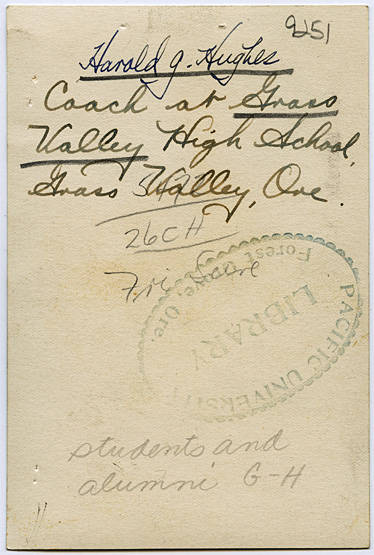 9251
Harold G. Hughes
Coach at Grass
Valley High School,
Grass Valley, Ore.
26CH
PACIFIC UNIVERSITY
LIBRARY
Forest Grove, Ore.
students and
alumni G-H